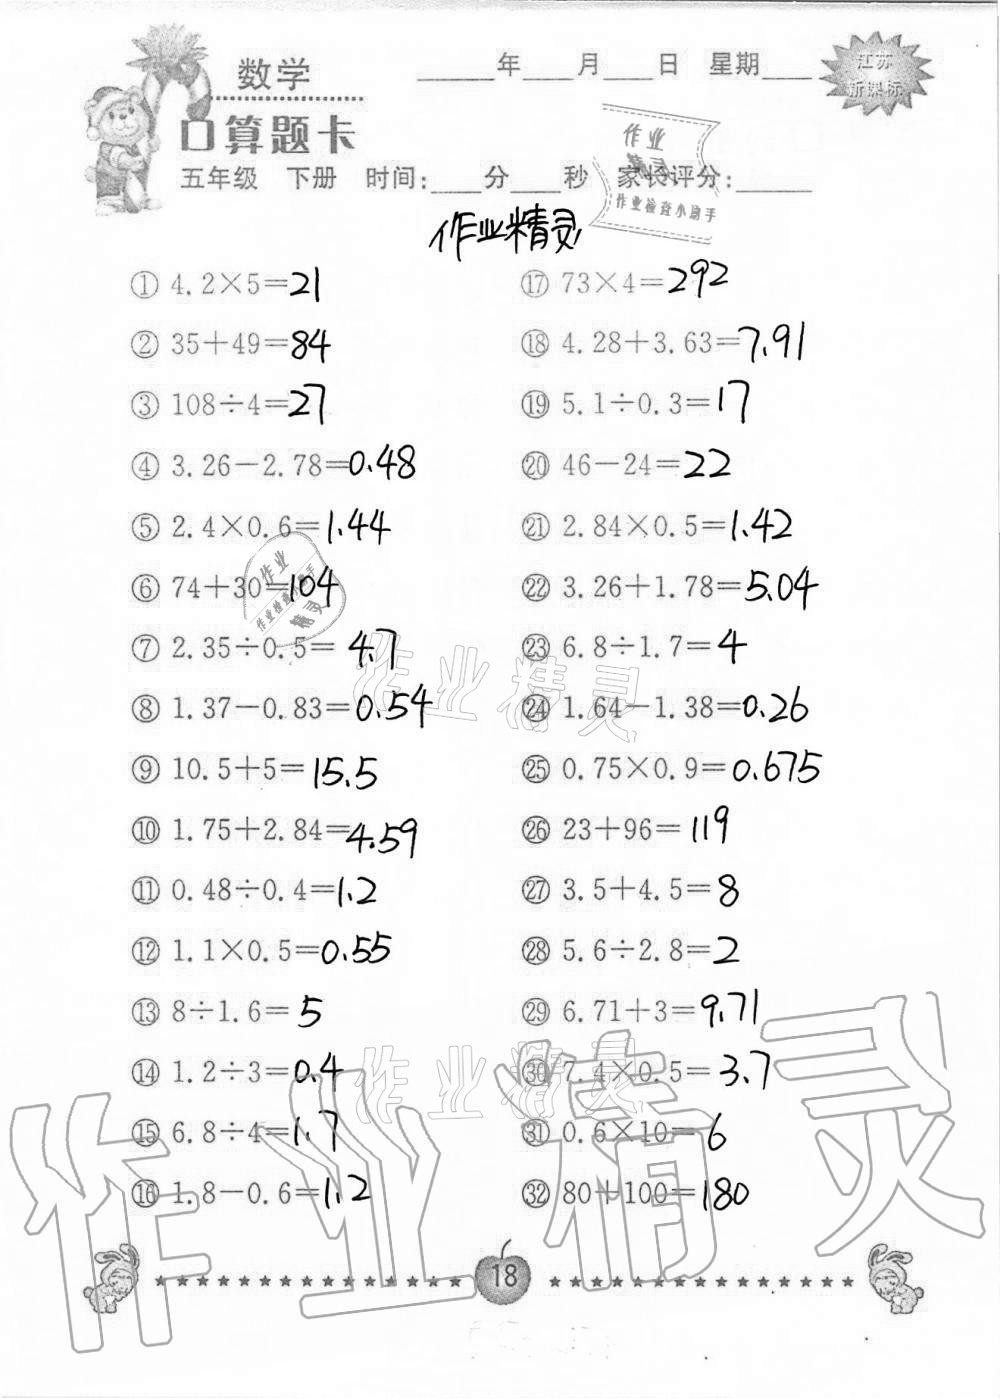 数学
____年____月____日 星期____
江苏
新课标
口算题卡
五年级 下册 时间:____分____秒 家长评分:____
作业
精灵
作业检查小助手
作业精灵
① 4.2×5=21
② 35+49=84
③ 108÷4=27
④ 3.26-2.78=0.48
⑤ 2.4×0.6=1.44
⑥ 74+30=104
⑦ 2.35÷0.5=4.7
⑧ 1.37-0.83=0.54
⑨ 10.5+5=15.5
⑩ 1.75+2.84=4.59
⑪ 0.48÷0.4=1.2
⑫ 1.1×0.5=0.55
⑬ 8÷1.6=5
⑭ 1.2÷3=0.4
⑮ 6.8÷4=1.7
⑯ 1.8-0.6=1.2
⑰ 73×4=292
⑱ 4.28+3.63=7.91
⑲ 5.1÷0.3=17
⑳ 46-24=22
㉑ 2.84×0.5=1.42
㉒ 3.26+1.78=5.04
㉓ 6.8÷1.7=4
㉔ 1.64-1.38=0.26
㉕ 0.75×0.9=0.675
㉖ 23+96=119
㉗ 3.5+4.5=8
㉘ 5.6÷2.8=2
㉙ 6.71+3=9.71
㉚ 7.4×0.5=3.7
㉛ 0.6×10=6
㉜ 80+100=180
作业
作业检查小助手
精灵
作业精灵
作业精灵
作业精灵
18